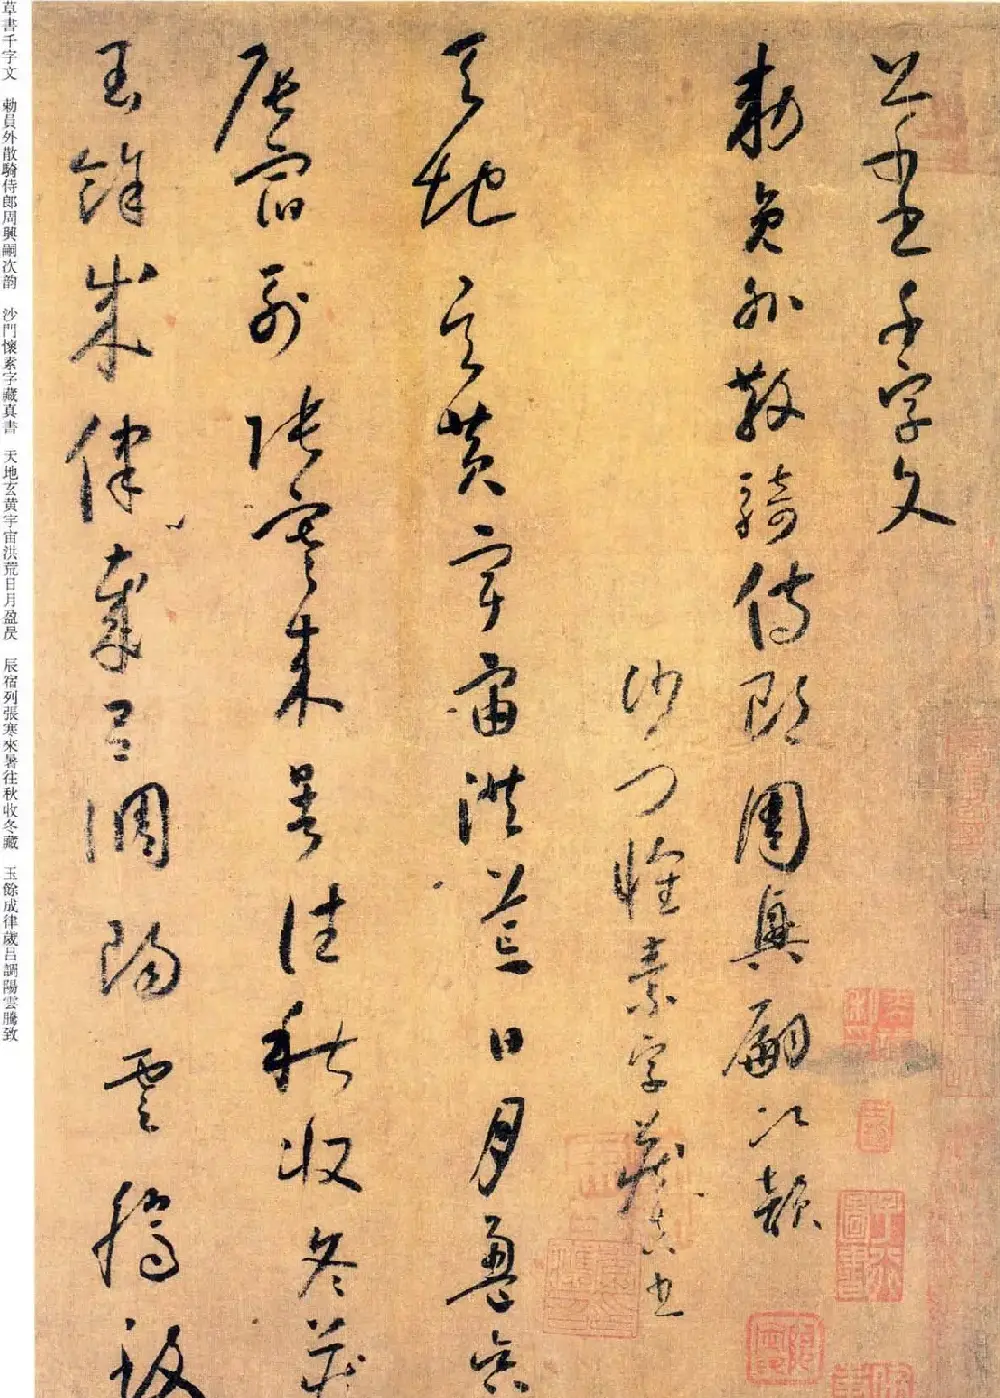 草書千字文
勅員外散騎侍郎周興嗣次韵
沙門懷素字藏真書
天地玄黄宇宙洪荒日月盈昃
辰宿列張寒來暑往秋收冬藏
玉餘成律歲吕調陽雲騰致
草書千字文 勅員外散騎侍郎周興嗣次韵 沙門懷素字藏真書 天地玄黄宇宙洪荒日月盈昃 辰宿列張寒來暑往秋收冬藏 玉餘成律歲吕調陽雲騰致